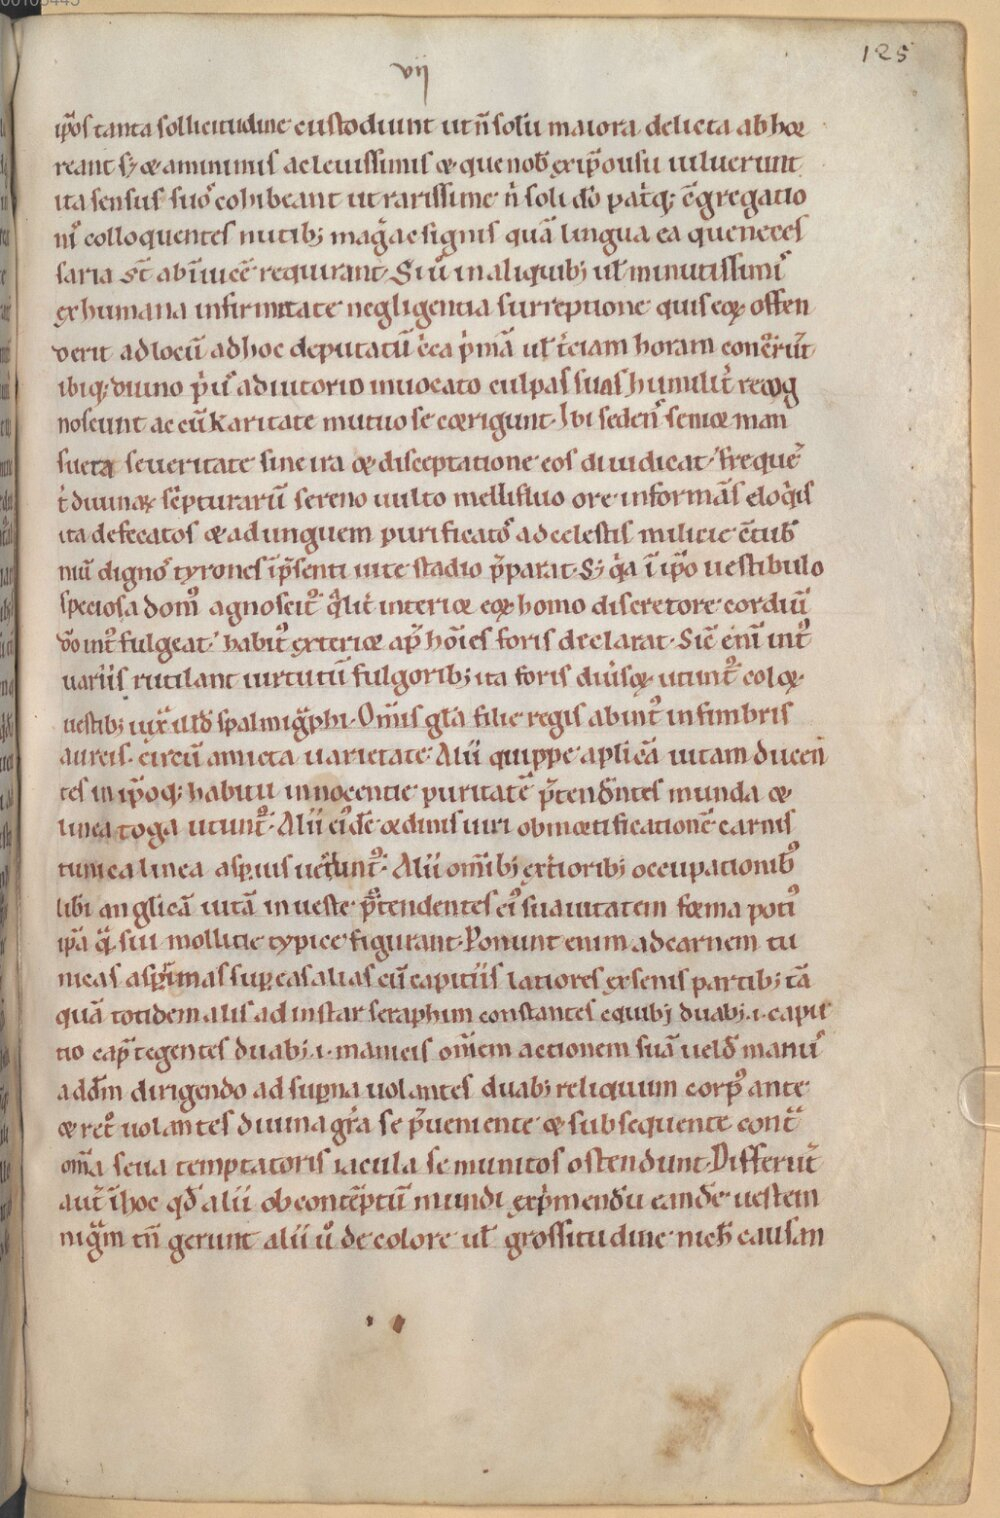 125
vij
ip̄os tanta sollicitudine custodiunt ut n̄ solū maiora delicta abhor
reant s; & a minimis ac leuissimis & que nob̄ ex ip̄o usu uiluerunt
ita sensus suos cohibeant ut rarissime n̄ soli d̄o pat̄q; c̄gregatio
nis colloquentes nutib; maḡ ac signis quā lingua ea que neces
saria st̄ ab īuicē requirant. Si ū in aliquib; ul̄ minutissimis
ex humana infirmitate negligentia surreptione quis eoꝝ offen
derit ad locū ad hoc deputatū c̄ca p̄mā ul̄ t̄ciam horam conueniūt
ibiq; diuino p̄us adiutorio inuocato culpas suas humilit̄ recog
noscunt ac cū karitate mutuo se corrigunt. Ibi sedens senior man
sueta seueritate sine ira & disceptatione eos diiudicat. frequēt
t̄ diuinaꝝ sc̄pturarū sereno uulto mellifluo ore informās eloq̄is
ita defecatos & ad unguem purificatos ad celestis milicie c̄tub̄
niū dignos tyrones ī p̄senti uite stadio p̄parat. S; q̄a ī ip̄o uestibulo
speciosa domus agnoscit̄ q̄lit̄ interior eoꝝ homo discretore cordiū
d̄o int̄ fulgeat. habitus exterior ap̄ hōies foris declarat. Sic̄ enī intus
uariis rutilant uirtutū fulgorib; ita foris diuersoꝝ utunt̄ coloꝝ
uestib; iuxta illd̄ spalmiḡphi. Om̄is gl̄a filie regis ab intus in fimbris
aureis. circū amicta uarietate. Alii quippe aplicā uitam ducen
tes in ip̄oq; habitu innocentie puritatē p̄tend̄ntes munda &
linea toga utunt̄. Alii eiusdē ordinis uiri ob mortificationē carnis
tunica linea asperius uestiunt̄. Alii om̄ib; ext̄iorib; occupationib;
libi anglicā uitā in ueste p̄tendentes eius suauitatem forma potius
ip̄a q̄ sui mollitie typice figurant. Ponunt enim ad carnem tu
nicas asp̄imas sup̲ eas alias cū capitiis latiores ex senis partib; tā
quā totidem alis ad instar seraphim constantes e quib; duab; .i. capi
tio cap̄ tegentes duab; .i. manicis om̄em actionem suā uel d̄ manus
ad dm̄ dirigendo ad sup̲na uolantes duab; reliquum corpus ante
& ret̄ uolantes diuina gr̄a se p̄ueniente & subsequente cont̄
om̄a seua temptatoris iacula se munitos ostendunt. Differūt
aut̄ ī hoc qd̄ alii ob contēptū mundi exp̄mendū eandē uestem
niḡm tn̄ gerunt alii ū de colore ul̄ grossitudine nich̄ causan